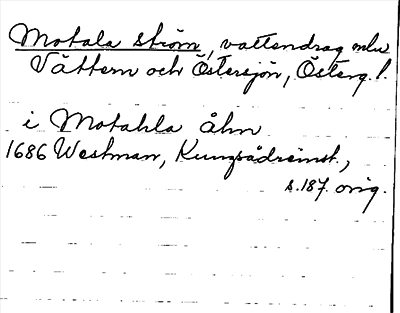 Motala ström, vattendrag mln
Vättern och Östersjön, Österg. l.
i Motahla åhn
1686 Westman, Kungsådreinst.,
s. 187. orig.